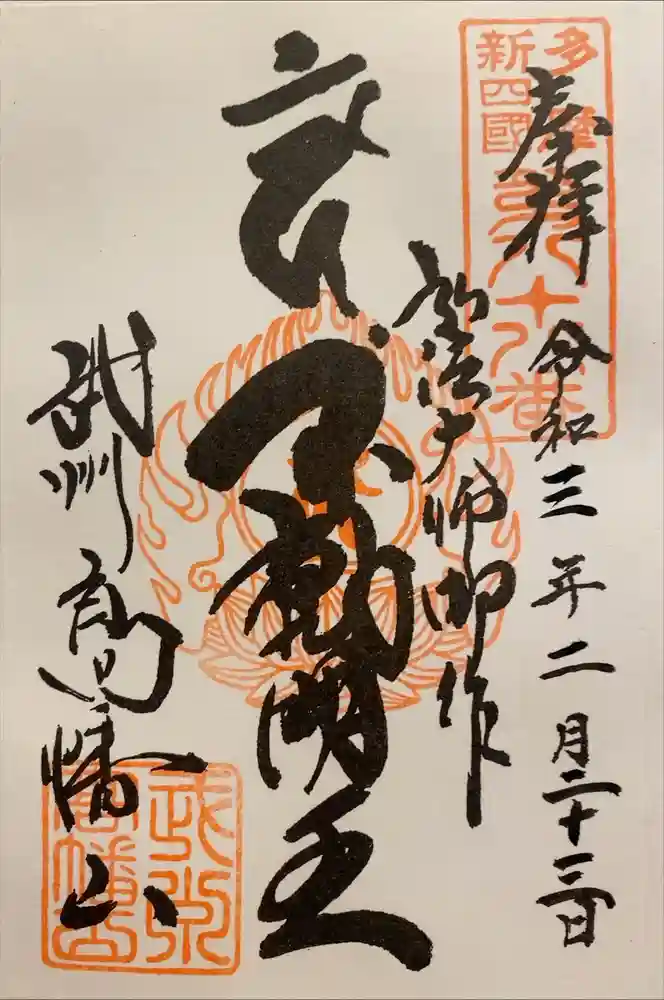 多摩
新四國
第八十八番
奉拝
令和三年二月二十三日
弘法大師御作
不動明王
武州高幡山
武州
高幡山